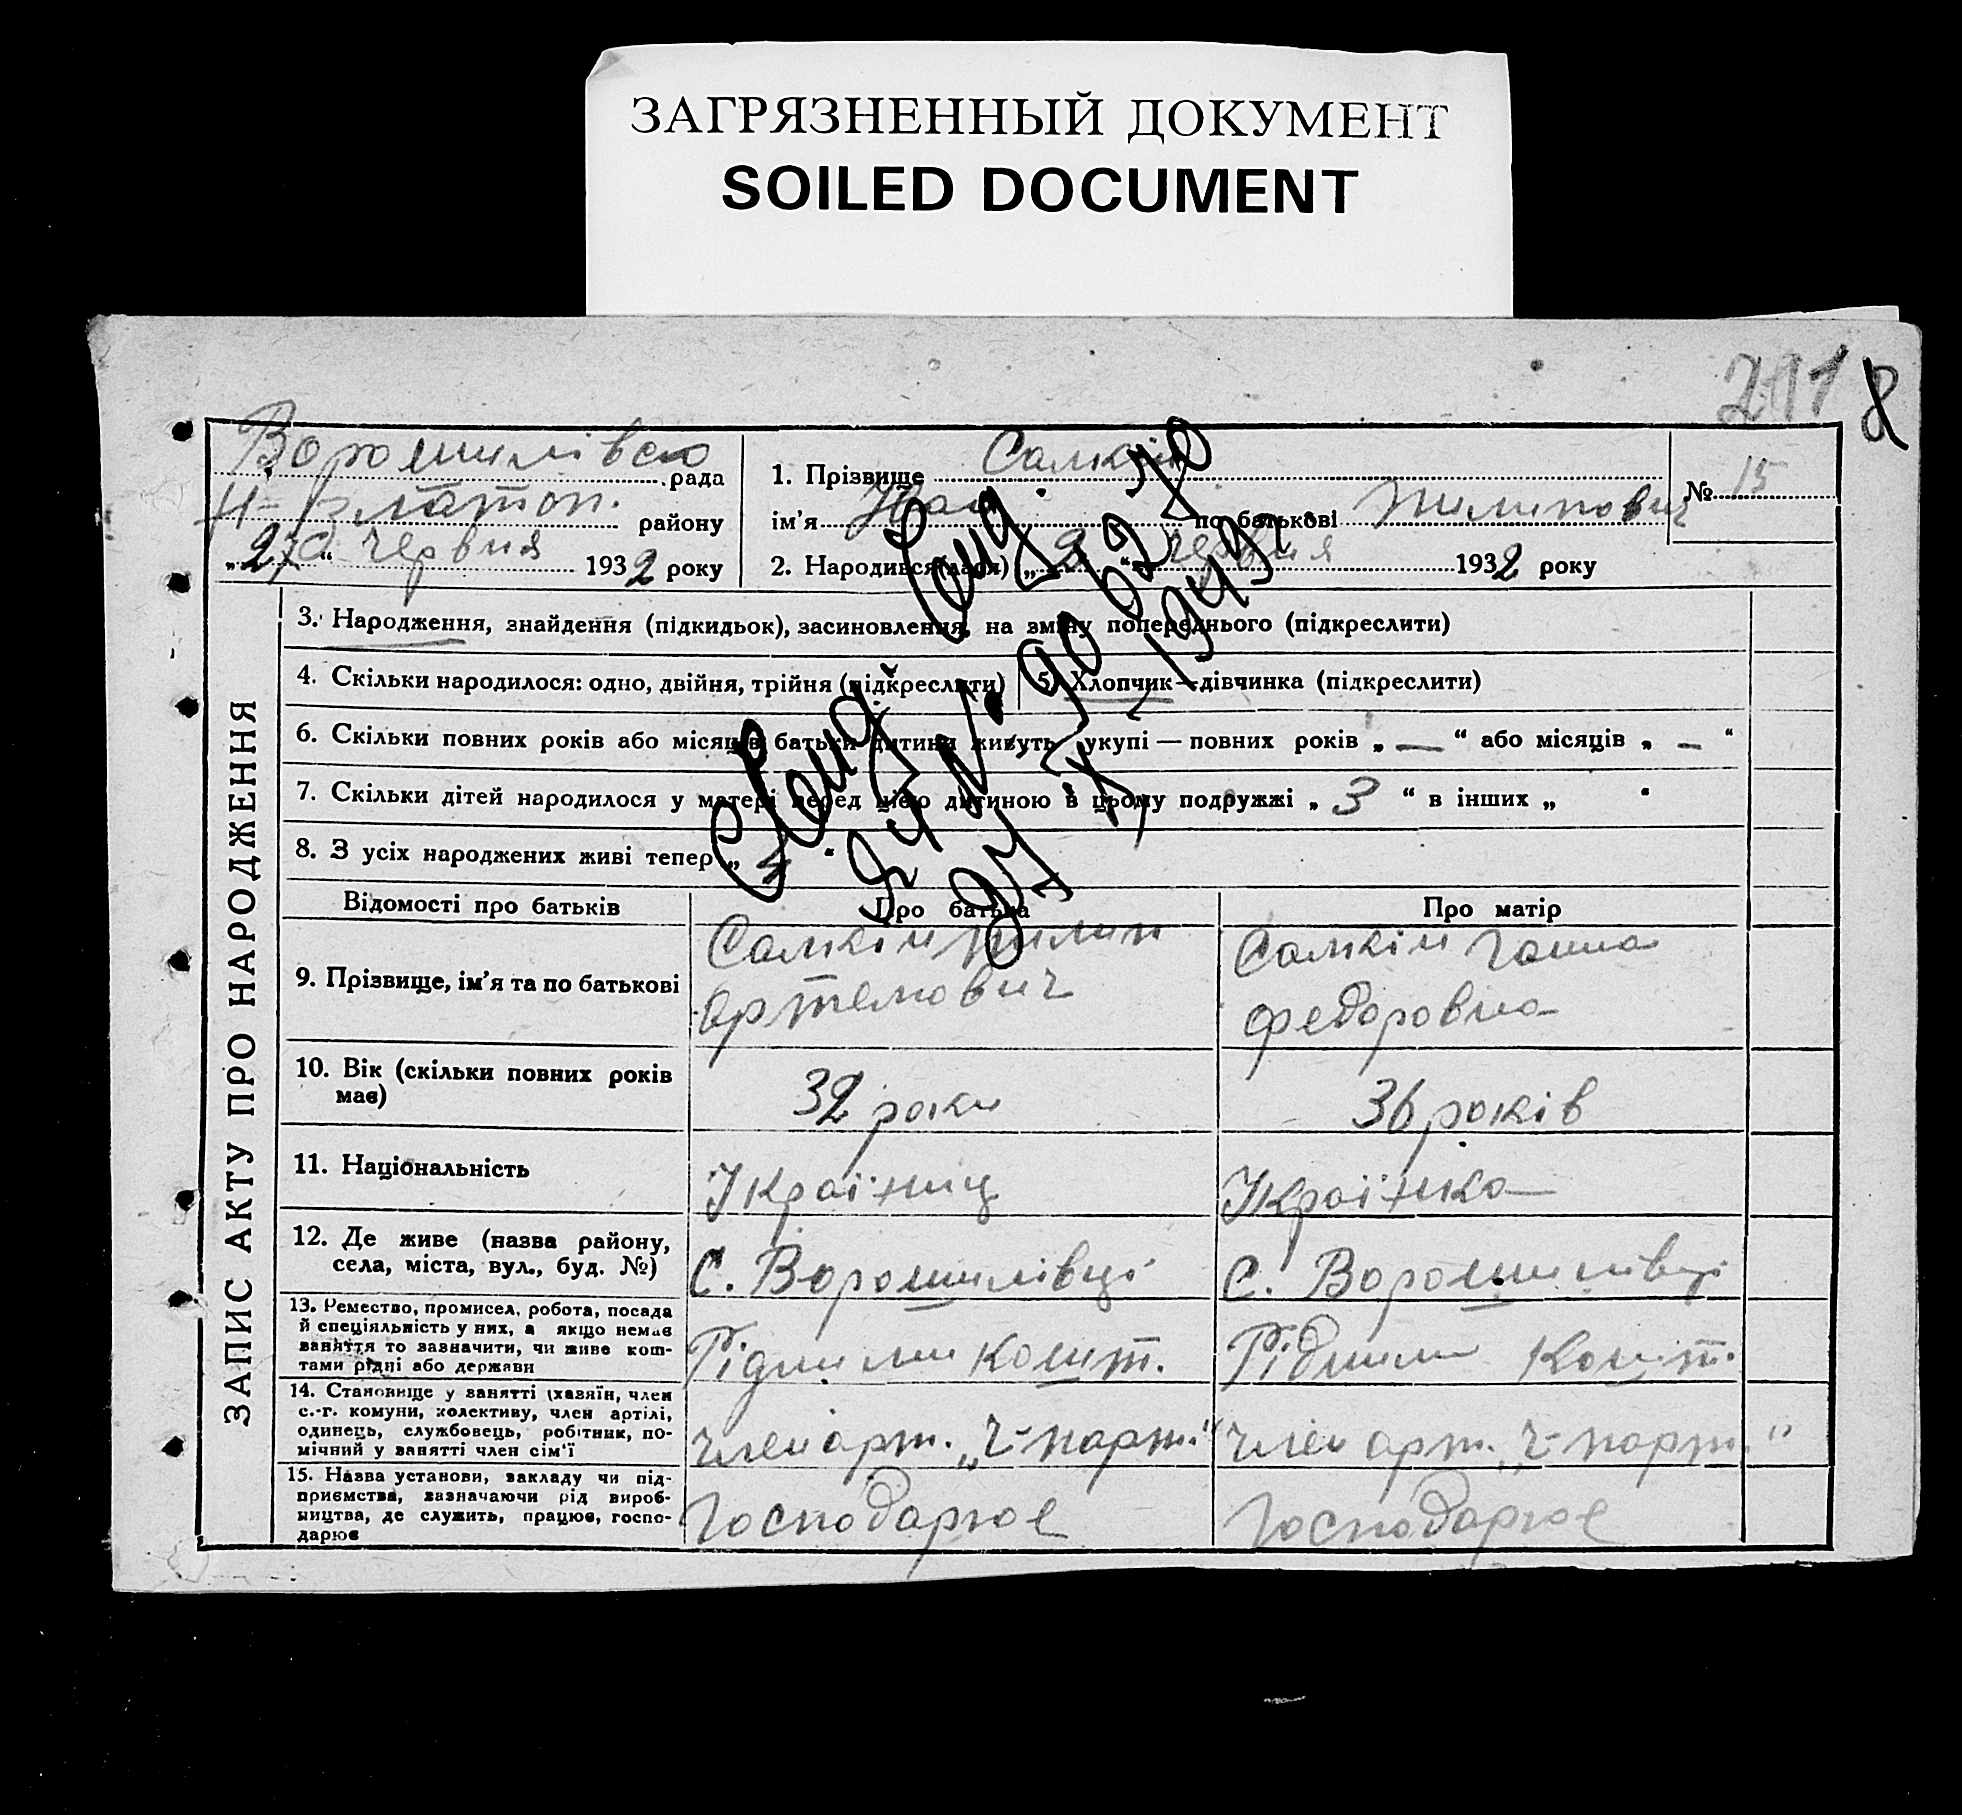 ЗАГРЯЗНЕННЫЙ ДОКУМЕНТ
SOILED DOCUMENT
211
ЗАПИС АКТУ ПРО НАРОДЖЕННЯ
рада
району
червня 1932 року
1. Прізвище Самкін
ім'я Іван по батькові Пилипович
№ 15
2. Народився(лася) „ 2 “ червня 1932 року
3. Народження, знайдення (підкидьок), засиновлення, на зміну попереднього (підкреслити)
4. Скільки народилося: одно, двійня, трійня (підкреслити)
5. Хлопчик—дівчинка (підкреслити)
6. Скільки повних років або місяців батьки дитини живуть укупі — повних років „ — “ або місяців „ — “
7. Скільки дітей народилося у матері перед цією дитиною в цьому подружжі „ 3 “ в інших „ “
8. З усіх народжених живі тепер „ 4 “
Відомості про батьків
Про батька
Про матір
9. Прізвище, ім'я та по батькові
Самкін Пилип
Артемович
Самкін Ганна
Федоровна
10. Вік (скільки повних років має)
32 роки
36 років
11. Національність
Україниц
Українка
12. Де живе (назва району,
села, міста, вул., буд. №)
С. Ворошилівці
С. Ворошилівці
13. Ремество, промисел, робота, посада
й спеціяльність у них, а якщо немає
заняття то зазначити, чи живе кош-
тами рідні або держави
Рідними кошт.
Рідними кошт.
14. Становище у занятті (хазяїн, член
с.-г. комуни, колективу, член артілі,
одинець, службовець, робітник, по-
мічний у занятті член сім'ї
член арт. „Ч-парт.“
член арт. „Ч-парт.“
15. Назва установи, закладу чи під-
приємства, зазначаючи рід вироб-
ництва, де служить, працює, госпо-
дарює
Господарює
Господарює